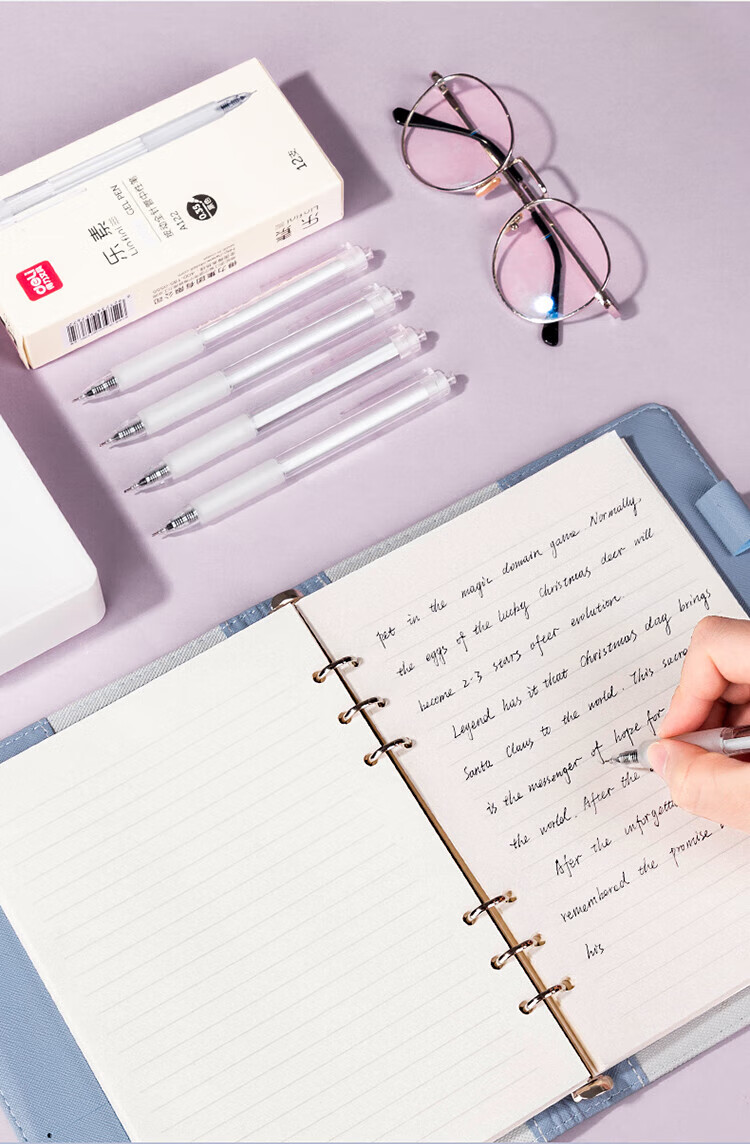 12支
GEL PEN
Linfini
乐·潆
A122
按动全针管中性笔
0.35
黑色
Linfini
乐·潆
deli
得力文具
得力集团有限公司
pet in the magic domain game. Normally,
the eggs of the lucky Christmas deer will
become 2-3 stars after evolution.
Legend has it that Christmas day brings
Santa Claus to the world. This sacre
is the messenger of hope for
the world. After the
After the unforgetta
remembered the promise
his